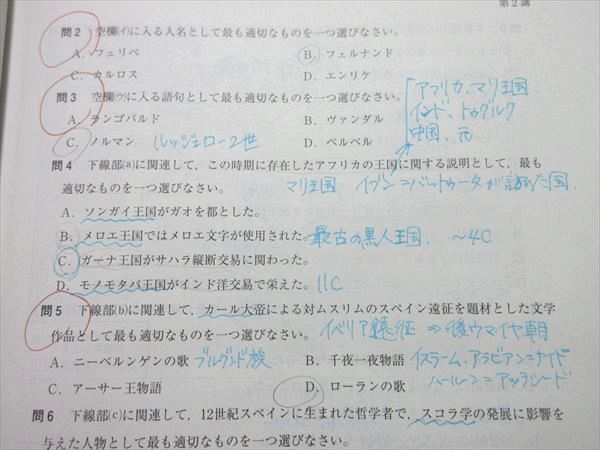 第2講
問2 空欄(イ)に入る人名として最も適切なものを一つ選びなさい。
A. フェリペ B. フェルナンド
C. カルロス D. エンリケ
アフリカ、マリ王国
問3 空欄(ウ)に入る語句として最も適切なものを一つ選びなさい。
インド、トゥグルク
A. ランゴバルド B. ヴァンダル
中国、元
C. ノルマン ルッジェロー2世 D. ベルベル
問4 下線部(a)に関連して，この時期に存在したアフリカの王国に関する説明として，最も
適切なものを一つ選びなさい。 マリ王国 イブン=バットゥータが訪れた国.
A. ソンガイ王国がガオを都とした。
B. メロエ王国ではメロエ文字が使用された。最古の黒人王国. ～4C
C. ガーナ王国がサハラ縦断交易に関わった。
D. モノモタパ王国がインド洋交易で栄えた。11C
問5 下線部(b)に関連して，カール大帝による対ムスリムのスペイン遠征を題材とした文学
作品として最も適切なものを一つ選びなさい。 イベリア遠征 ⇒後ウマイヤ朝.
A. ニーベルンゲンの歌 ブルグンド族 B. 千夜一夜物語 イスラーム.アラビアン=ナイト
C. アーサー王物語 D. ローランの歌 ハールーン=アッラシード
問6 下線部(c)に関連して，12世紀スペインに生まれた哲学者で，スコラ学の発展に影響を
与えた人物として最も適切なものを一つ選びなさい。